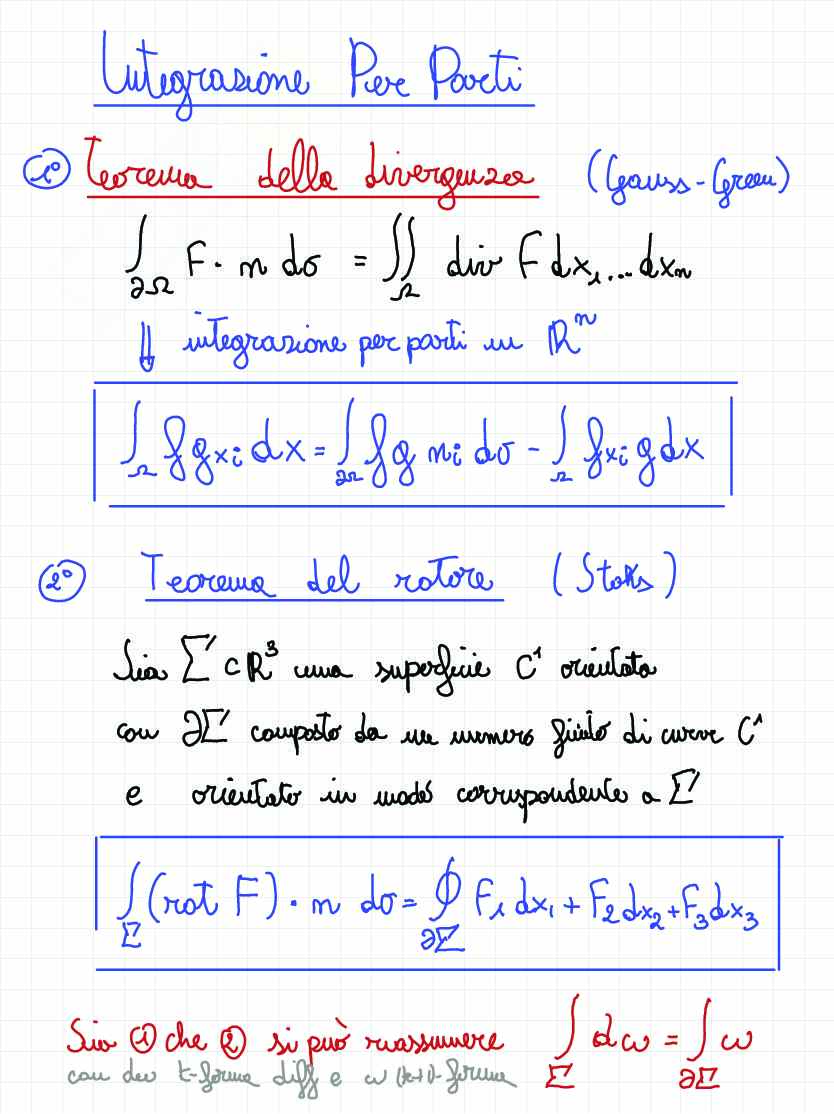 Integrazione Per Parti
1° Teorema della divergenza (Gauss-Green)
∫_∂Ω F · n dσ = ∬_Ω div F dx₁...dxₙ
⇓ integrazione per parti in ℝⁿ
∫_Ω f g_xi dx = ∫_∂Ω f g nᵢ dσ - ∫_Ω f_xi g dx
2° Teorema del rotore (Stoks)
Sia Σ ⊂ ℝ³ una superficie C¹ orientata
con ∂Σ composto da un numero finito di curve C¹
e orientato in modo corrispondente a Σ
∫_Σ (rot F) · n dσ = ∮_∂Σ F₁ dx₁ + F₂ dx₂ + F₃ dx₃
Sia ① che ② si può riassumere ∫_Σ dω = ∫_∂Σ ω
con dω k-forma diff e ω (k+1)-forma